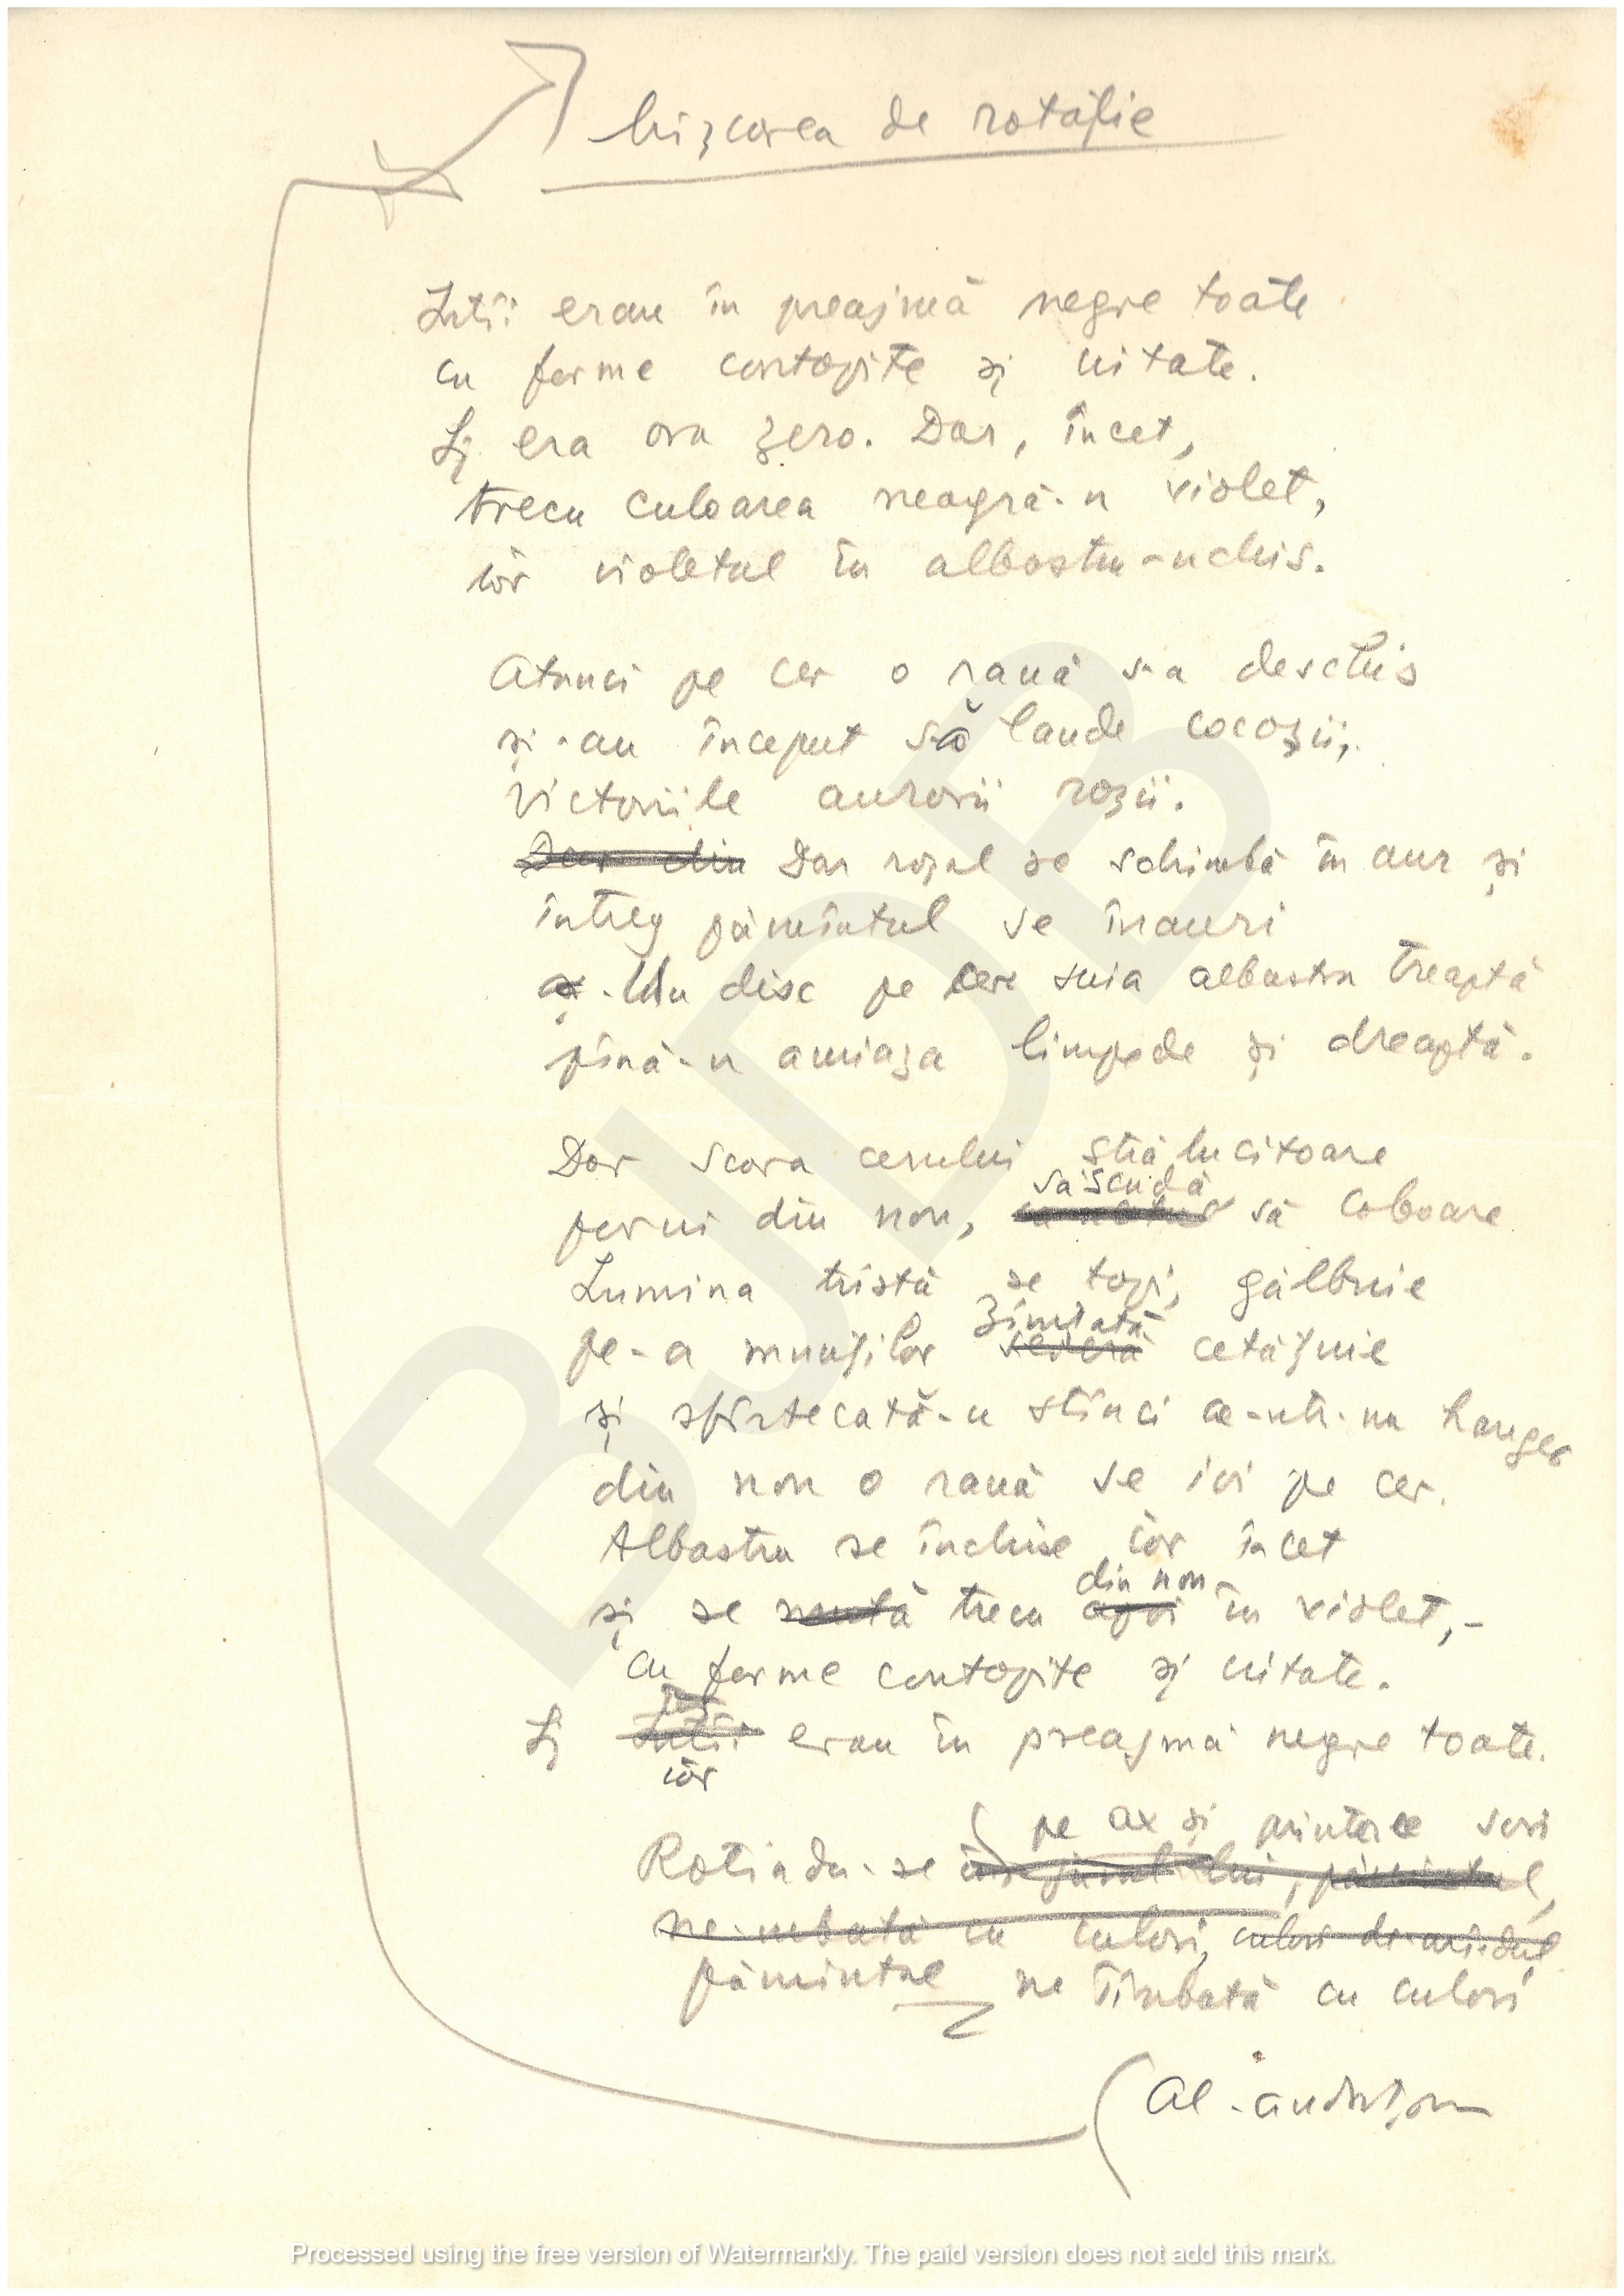 Mişcarea de rotaţie
Întîi erau în preajmă negre toate
cu forme contopite şi uitate.
Şi era ora zero. Dar, încet,
trecu culoarea neagră-n violet,
iar violetul în albastru-nchis.
Atunci pe cer o rană s-a deschis
şi-au început să laude cocoşii,
victoriile aurorii roşii.
Dar din Dar roşul se schimbă în aur şi
întreg pămîntul se înauri
Un disc pe cer suia albastra treaptă
pînă-n amiaza limpede şi dreaptă.
Dar scara cerului strălucitoare
porni din nou, să scadă să coboare
Lumina tristă se topi, gălbuie
pe-a munţilor zimţată cetăţuie
şi sfîrtecată-n stînci ca-ntr-un hanger
din nou o rană se ivi pe cer.
Albastru se închise iar încet
şi se mută trecu din nou apoi în violet,-
cu forme contopite şi uitate.
Şi Întîi iar erau în preajmă negre toate.
pe ax şi printre sori
Rotindu-se în jurul lui, pămîntul,
ne-mbată cu culori, culori de-mi
pămîntul ne îmbată cu culori
Al. Andriţoiu
BJDB
Processed using the free version of Watermarkly. The paid version does not add this mark.